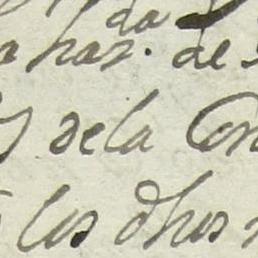 haz.da de
y de la Con
los dhos